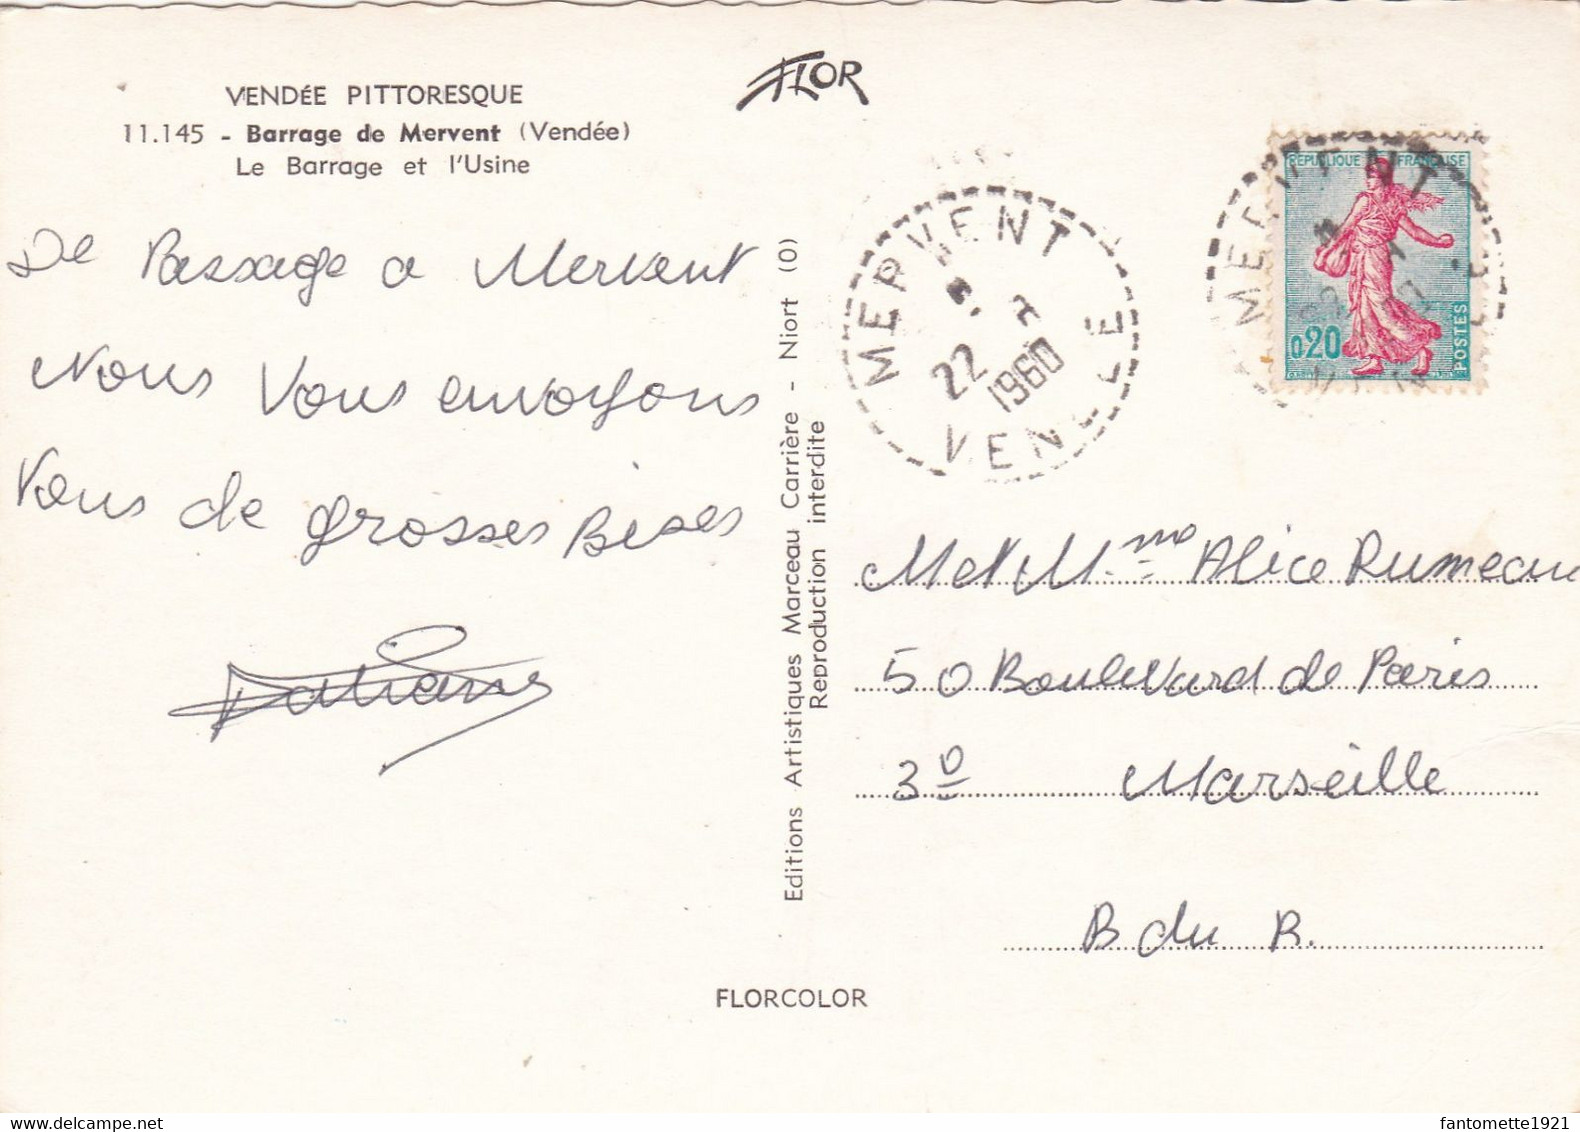 FLOR
VENDÉE PITTORESQUE
11.145 - Barrage de Mervent (Vendée)
Le Barrage et l'Usine
De Passage a Mervent
Nous Vous envoyons
Vous de grosses Bises
Editions Artistiques Marceau Carrière - Niort (O)
Reproduction interdite
MERVENT
22
1960
VENDEE
REPUBLIQUE FRANÇAISE
0,20
POSTES
MERVENT
M et Mme Alice Rumeau
50 Boulevard de Paris
3o Marseille
B du R.
FLORCOLOR
fantomette1921